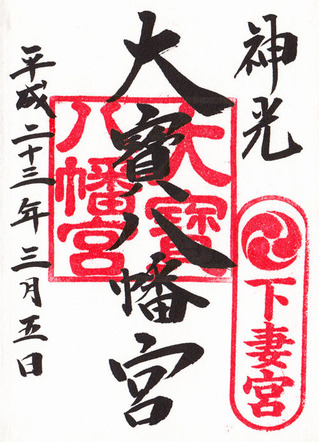 神光
下妻宮
大寳八幡宮
大寳
八幡宮
平成二十三年三月五日